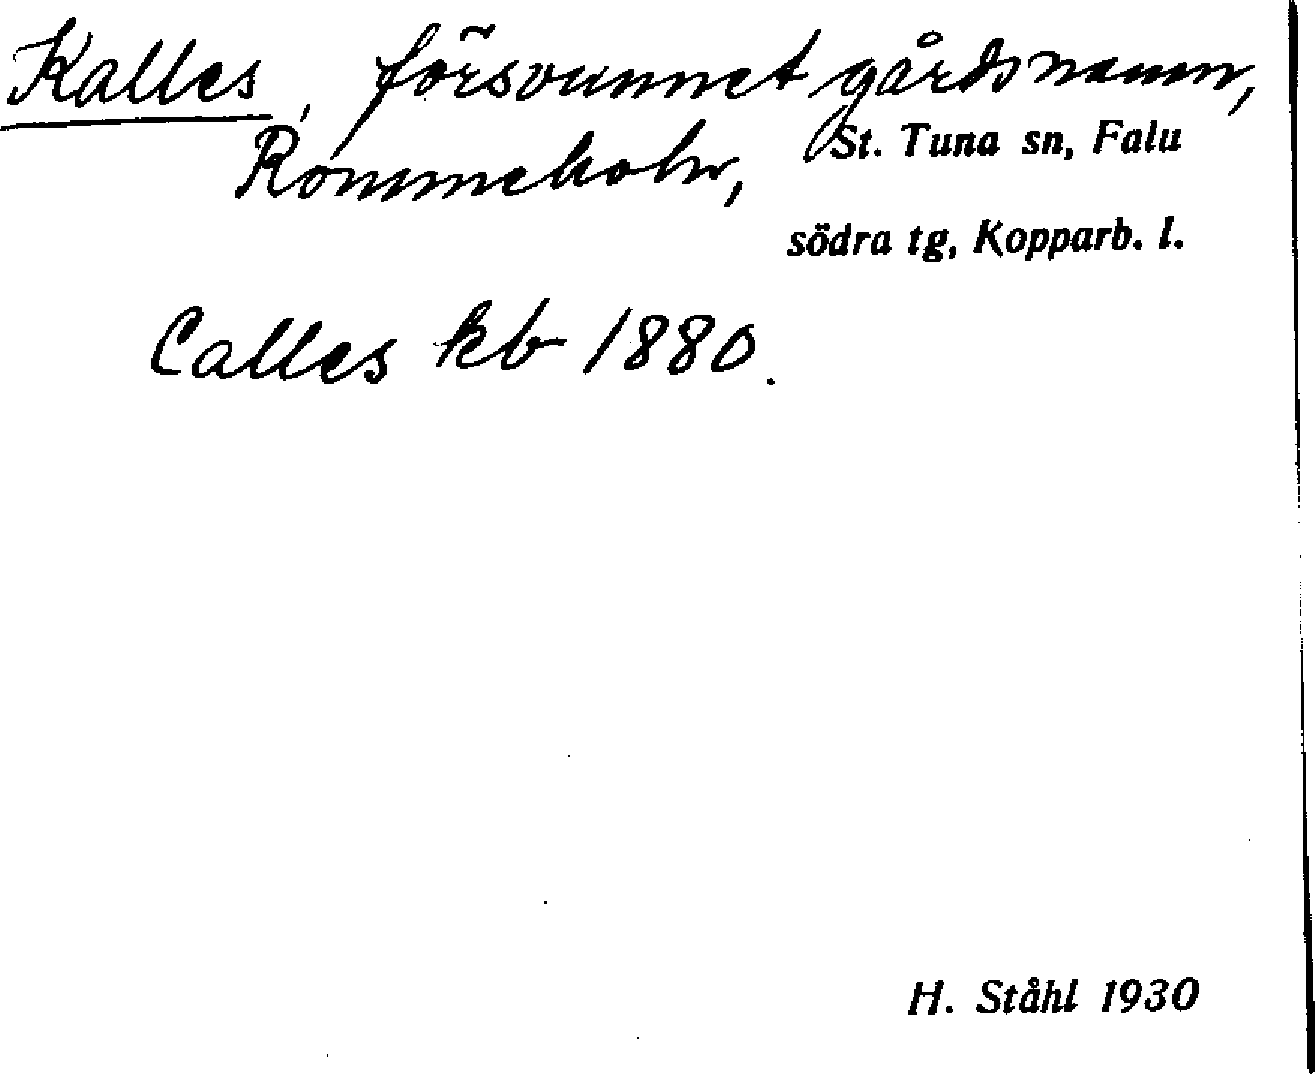 Kalles, försvunnet gårdsnamn,
Rommeholn, St. Tuna sn, Falu
södra tg, Kopparb. l.
Calles kb 1880.
H. Ståhl 1930